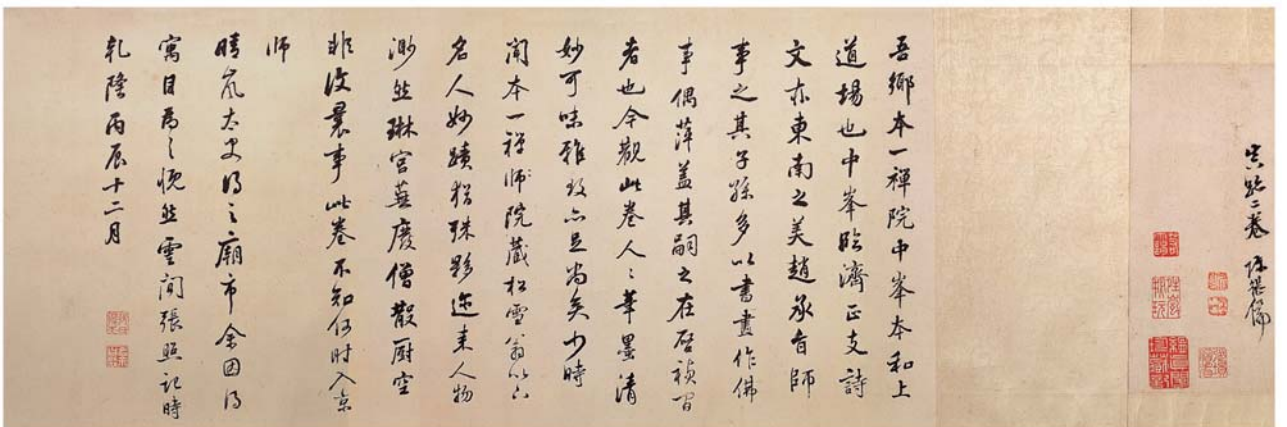 真跡二卷 陳繼儒
吾鄉本一禪院中峯本和上
道場也中峯臨濟正支詩
文亦東南之美趙承旨師
事之其子孫多以書畫作佛
事偶萍蓋其嗣之在啓禎間
者也今觀此卷人〻筆墨清
妙可味雅致亦足尚矣少時
聞本一禪師院藏松雪翁以下
名人妙蹟猶殊夥邇来人物
渺然琳宮蕪廢僧散厨空
非復曩事此卷不知何時入京
师
晴嵐太史得之廟市余因得
寓目爲之慨然雲間張照記時
乾隆丙辰十二月